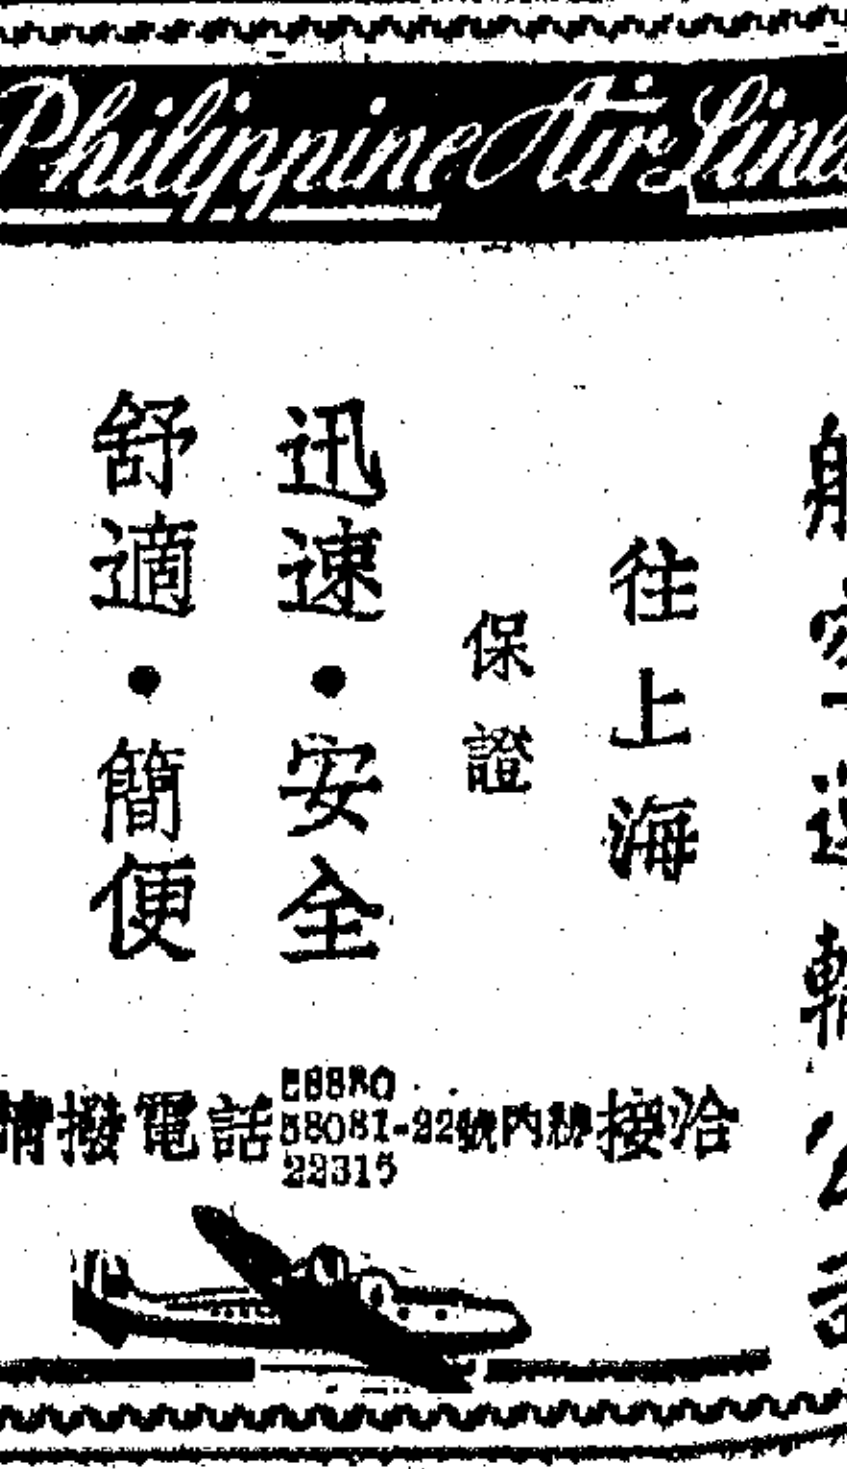 Philippine Air Line
航空運輸公司
往上海
保證
迅速・安全
舒適・簡便
請撥電話
58081-22號內線接洽
22315